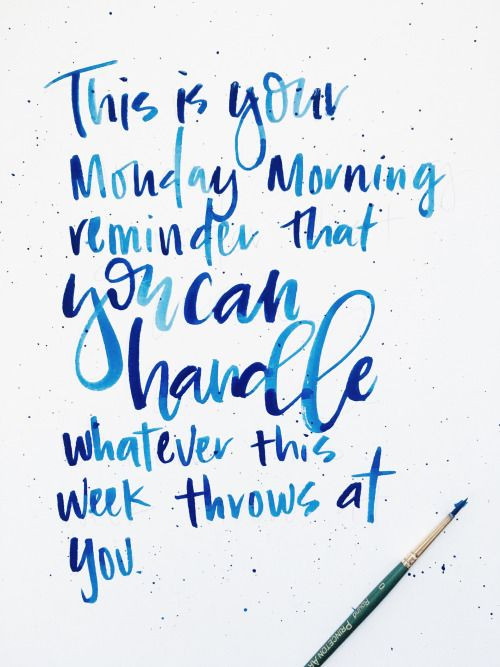 This is your
Monday Morning
reminder that
you can
handle
whatever this
week throws at
you.
0
Round PRINCETON AR